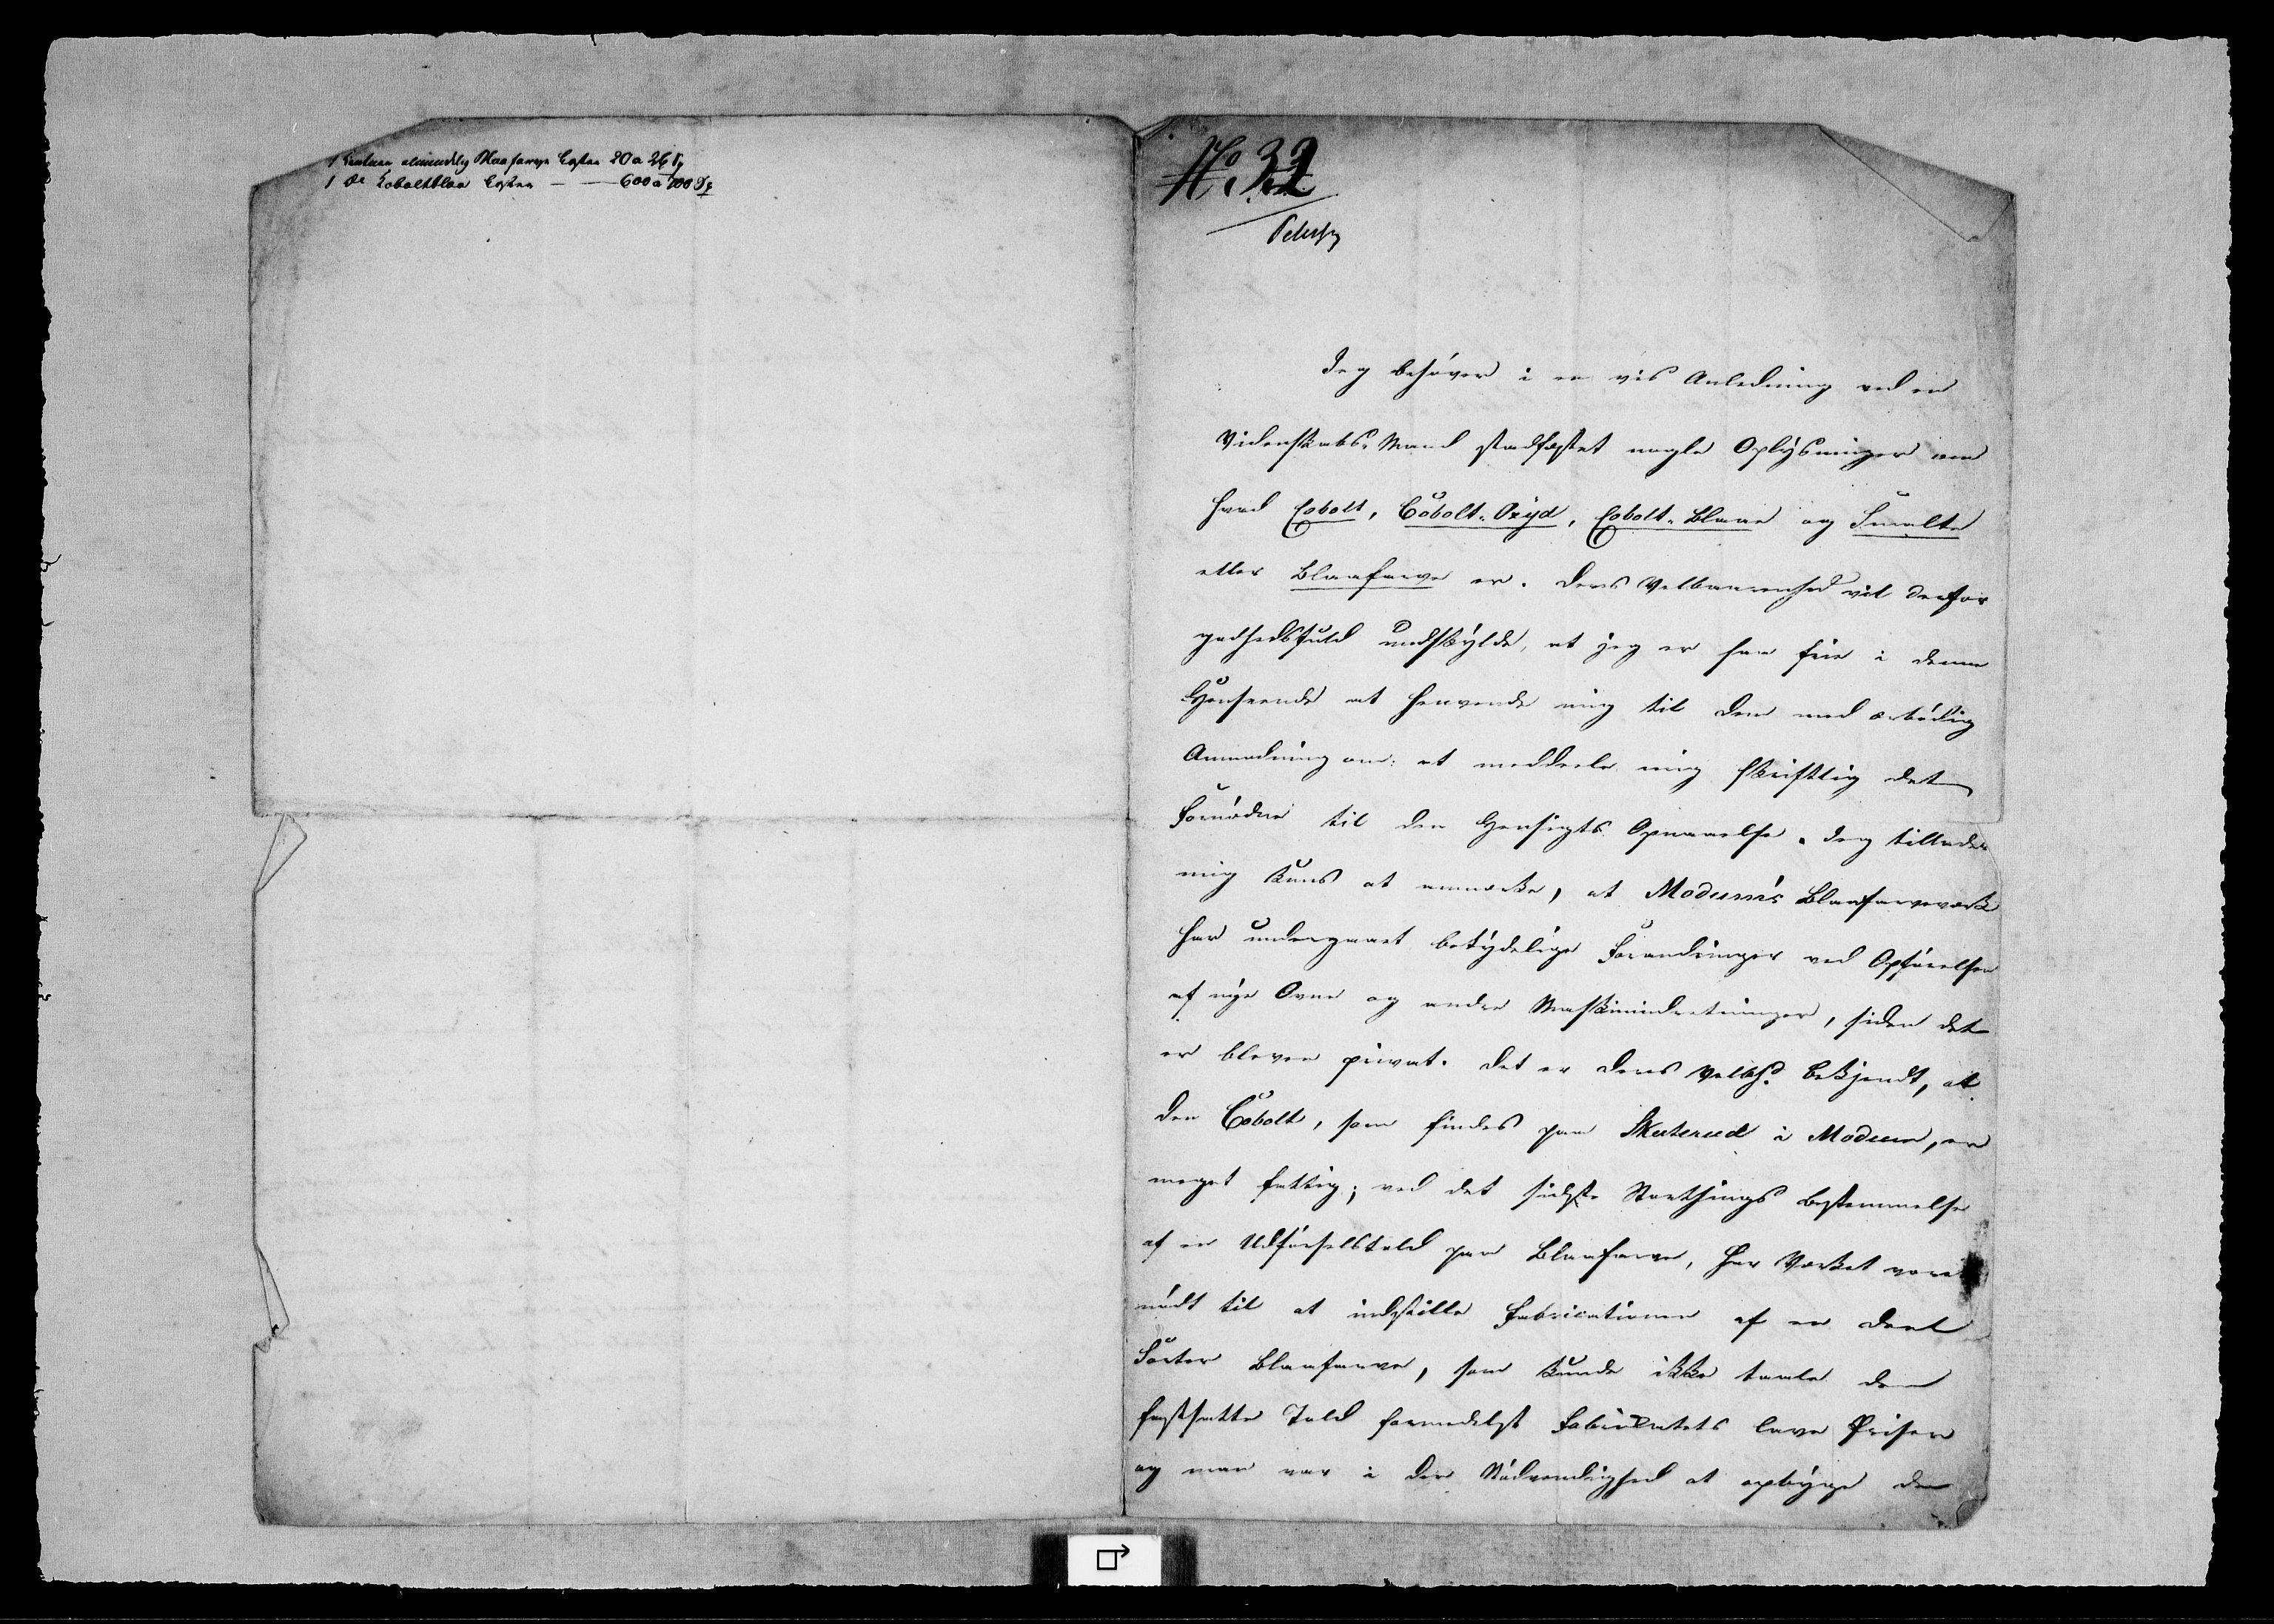 1 Centner almindelig Blaafarve Coster 20 a 26 Sp
1 do Koboltblaa Coster — — 600 a 700 Sp
No. 32
Jeg behøver i en vis Anledning ved en
Videnskabs-Mand stadfæstet nogle Oplysninger om
hvad Cobolt, Cobolt-Oxyd, Cobolt-Blaae og Smalte
eller Blaafarve er. Deres Velbaarenhed vil derfor
godhedsfuld undskylde, at jeg er saa frie i denne
Henseende at henvende mig til Dem med ærbödig
Anmodning om: at meddeele mig skriftlig det
Fornødne til den Hensigts Opnaaelse. Jeg tillader
mig kuns at anmærke, at Modum's Blaafarveværk
har undergaaet betydelige Forandringer ved Opførelsen
af nye Ovne og andre Maskinindretninger, siden det
er bleven privat. Det er Deres Velbhd. bekjendt, at
den Cobolt, som findes paa Skuterud i Modum, er
meget fattig; ved det sidste Storthings Bestemmelse
af en Udførselstold paa Blaafarve, har Værket være
nødt til at indstille Fabricationen af en Deel
Sorter Blaafarve, som kunde ikke taale den
fastsatte Told formedelst Fabricatets lave Priser
og man var i den Nødvendighed at opbygge den